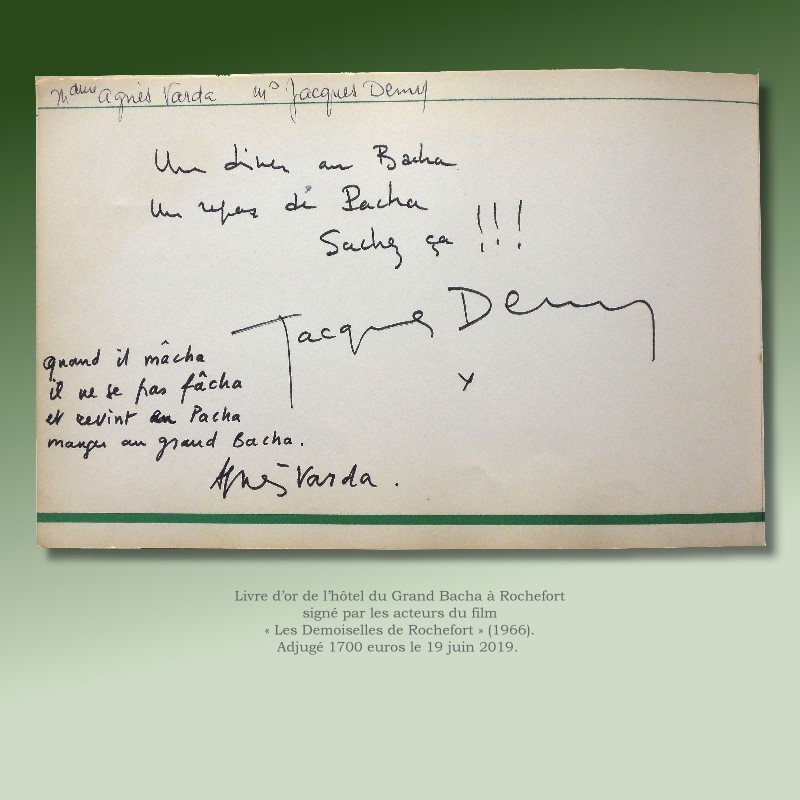 Mdme Agnès Varda Mr Jacques Demy
Un diner au Bacha
Un repas de Pacha
Sachez ça !!!
Jacques Demy
quand il mâcha
il ne se pas fâcha
et revint au Pacha
manger au grand Bacha.
Agnès Varda.
Livre d’or de l’hôtel du Grand Bacha à Rochefort
signé par les acteurs du film
« Les Demoiselles de Rochefort » (1966).
Adjugé 1700 euros le 19 juin 2019.